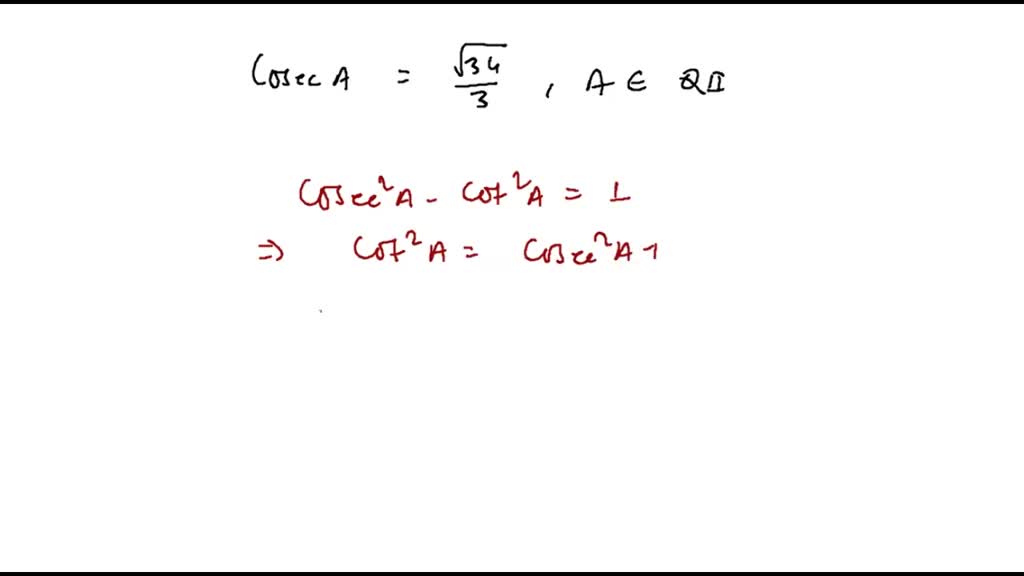 Cosec A = √34/3 , A ∈ QII
Cosec²A - Cot²A = 1
⇒ Cot²A = Cosec²A -1